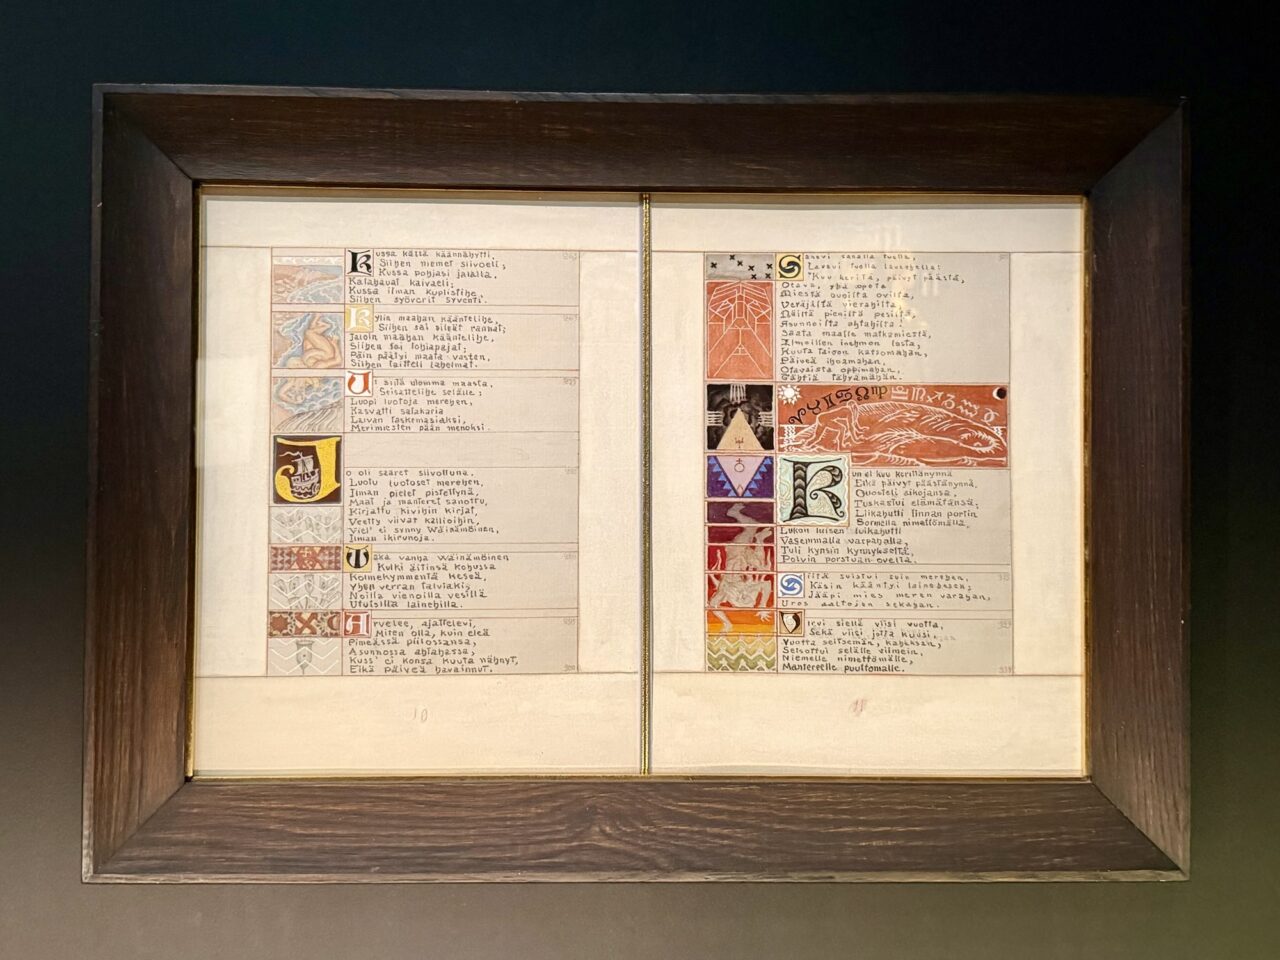 Kussa kättä käännähytti,
Siihen niemet siivoeli;
Kussa pohjasi jalalla,
Kalahauat kaivaeli;
Kussa ilman kuplistihe,
Siihen syöverit syventi.
Kylin maahan kääntelihe,
Siihen sai sileät rannat;
Jaloin maahan kääntelihe,
Siihen loi lohiapajat;
Päin päätyi maata vasten,
Siihen laitteli lahelmat.
Ui siitä ulomma maasta,
Seisattelihe selälle;
Luopi luotoja merehen,
Kasvatti salakaria
Laivan laskemasiaksi,
Merimiesten pään menoksi.
Jo oli saaret siivottuna,
Luotu luotoset merehen,
Ilman pielet pistettynä,
Maat ja manteret sanottu,
Kirjattu kivihin kirjat,
Veetty viivat kallioihin,
Viel' ei synny Wäinämöinen,
Ilmau ikirunoja.
Waka vanha Wäinämöinen
Kulki äitinsä kohussa
Kolmekymmentä keseä,
Yhen verran talviaki,
Noilla vienoilla vesillä
Utuisilla lainehilla.
Arvelee, ajattelevi,
Miten olla, kuin eleä
Pimeässä piilossansa,
Asunnossa ahtahassa,
Kuss' ei konsa kuuta nähnyt,
Eikä päiveä havainnut.
300
10
Sanovi sanalla tuolla,
Lausui tuolla lausehella:
"Kuu keritä, päivyt päästä,
Otava, yhä opeta
Miestä ouoilta ovilta,
Veräjiltä vierahilta,
Näiltä pieniltä pesiltä,
Asunnoilta ahtahilta!
Saata maalle matkamiestä,
Ilmoillen inehmon lasta,
Kuuta taivon katsomahan,
Päiveä ihoamahan,
Otavaista oppimahan,
Tähtiä tähyämähän."
Kun ei kuu kerittänynnä,
Eikä päivyt päästänynnä,
Ouosteli aikojansa,
Tuskastui elämätänsä;
Liikahutti linnan portin
Sormella nimettömällä,
Lukon luisen luikahutti
Vasemmalla varpahalla,
Tuli kynsin kynnykseltä,
Polvin porstuan ovelta.
Siitä suistui suin merehen,
Käsin kääntyi lainehesen;
Jääpi mies meren varahan,
Uros aaltojen sekahan.
Virui siellä viisi vuotta,
Sekä viisi jotta kuusi,
Vuotta seitsemän, kaheksan;
Seisottui selälle viimein,
Niemelle nimettömälle,
Manterelle puuttomalle.
11